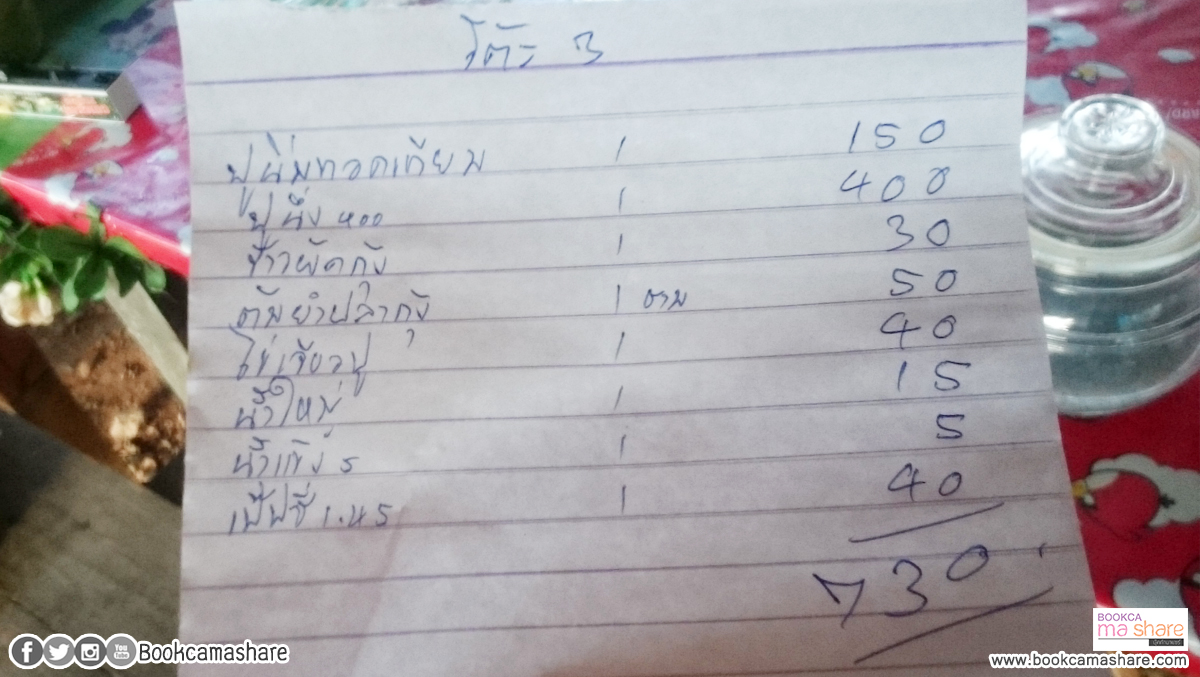 โต๊ะ 3
ปูนิ่มทอดเทียม 1 150
ปูนึ่ง 400 1 400
ข้าวผัดกุ้ง 1 30
ต้มยำปลากุ้ง 1 ชาม 50
ไข่เจียวปู 1 40
น้ำใหญ่ 1 15
น้ำแข็ง 5 1 5
เป๊ปซี่ 1.45 1 40
730
Bookcamashare
BOOKCA
ma share
www.bookcamashare.com